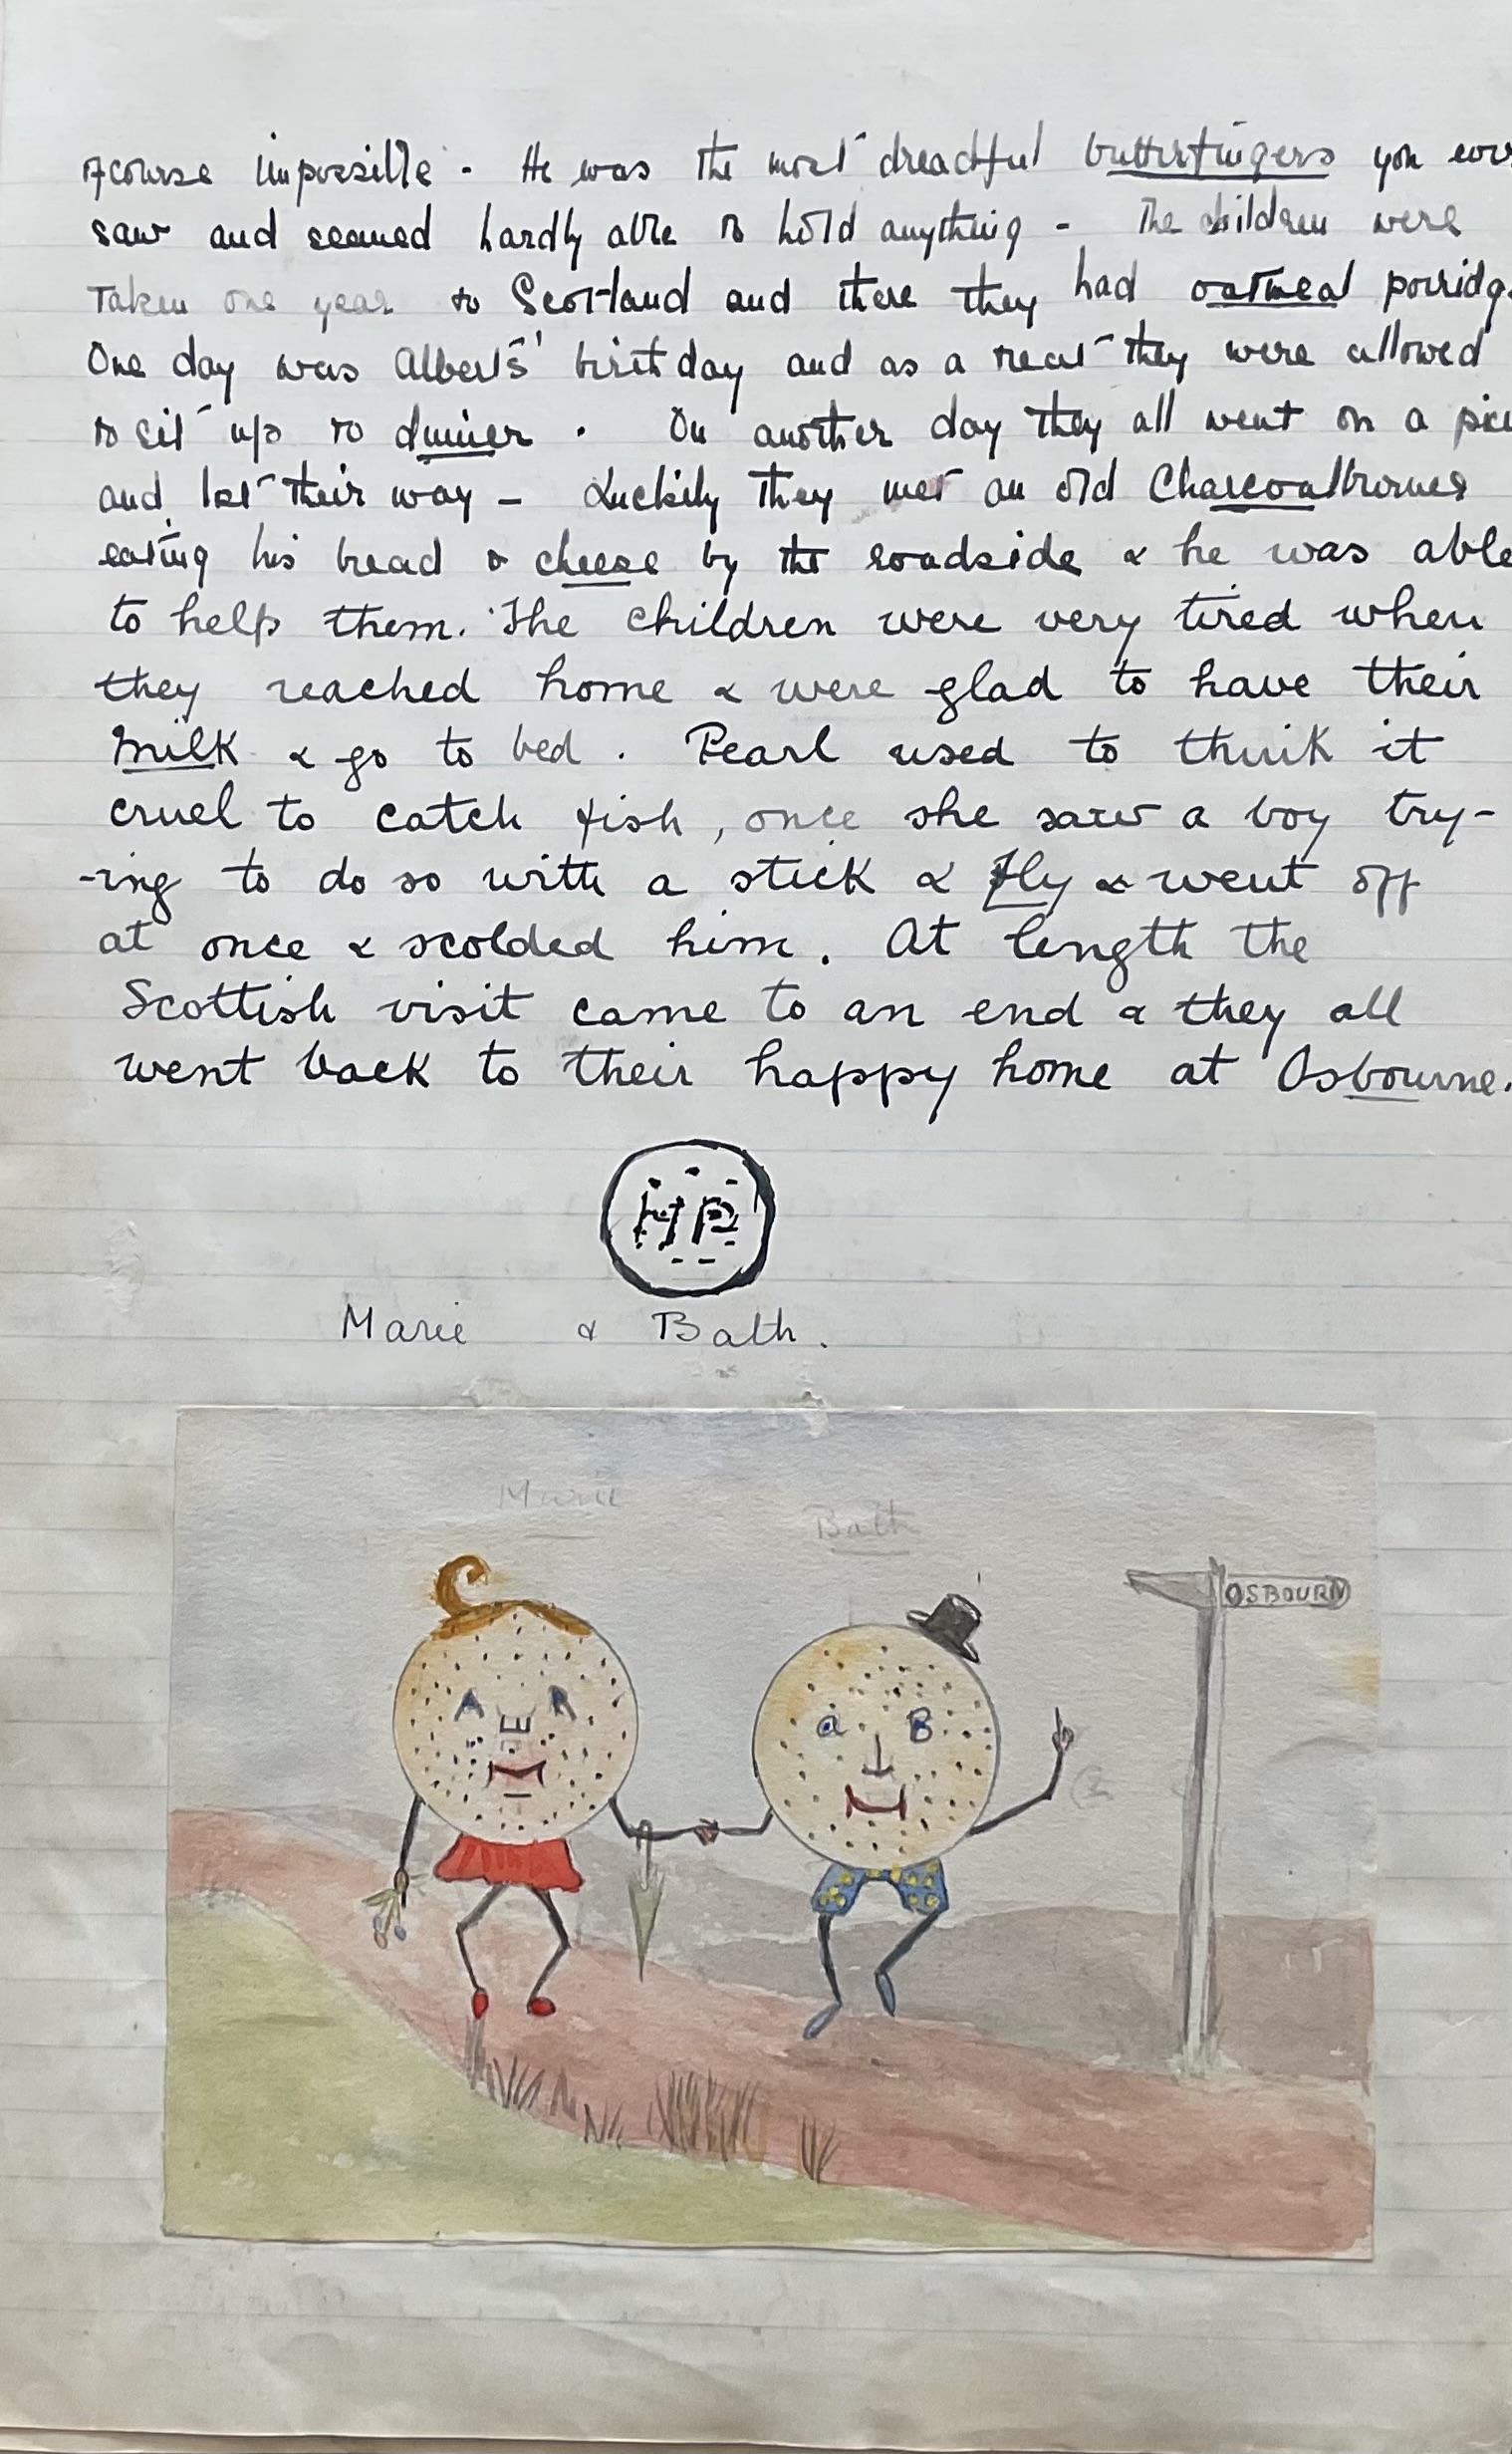 of course impossible - He was the most dreadful butterfingers you ever
saw and seemed hardly able to hold anything - The children were
Taken one year to Scotland and there they had oatmeal porridg
One day was Alberts' birthday and as a treat they were allowed
to sit up to dinner . On another day they all went on a pic
and lost their way - Luckily they met an old Charcoalburner
eating his bread & cheese by the roadside & he was able
to help them. The children were very tired when
they reached home & were glad to have their
milk & go to bed . Pearl used to think it
cruel to catch fish, once she saw a boy try-
-ing to do so with a stick & fly & went off
at once & scolded him. At length the
Scottish visit came to an end & they all
went back to their happy home at Osbourne.
HP
Marie & Bath.
Marie
Bath
OSBOURN
A R
E
a B